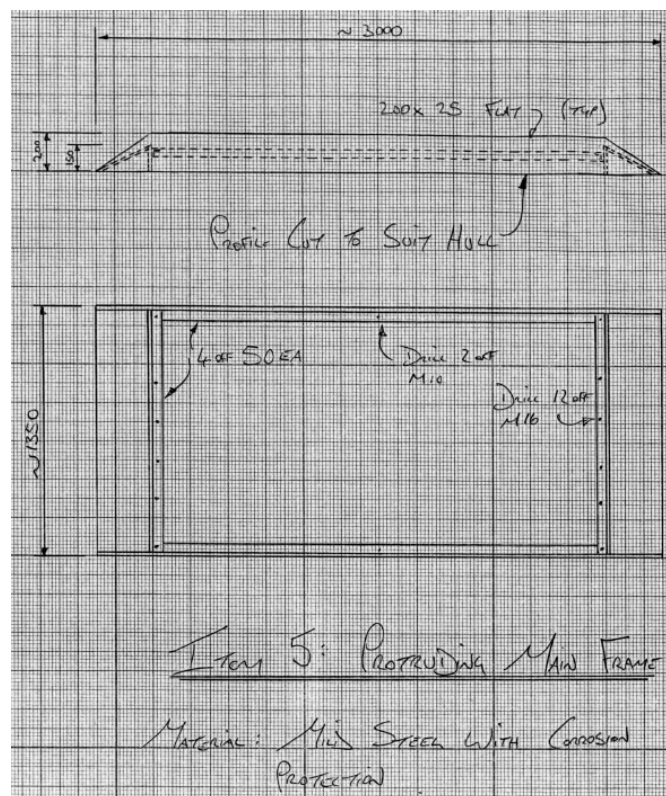 ~ 3000
200 x 25 FLAT (TYP)
200
150
PROFILE CUT TO SUIT HULL
4 OFF 50 EA
DRILL 2 OFF
M10
DRILL 12 OFF
M16
~1350
ITEM 5: PROTRUDING MAIN FRAME
MATERIAL: MILD STEEL WITH CORROSION
PROTECTION